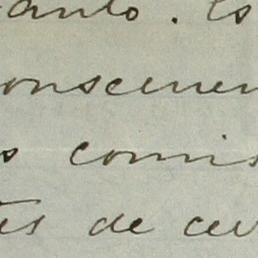 anto. Es
onscien
s comis
tes de cer